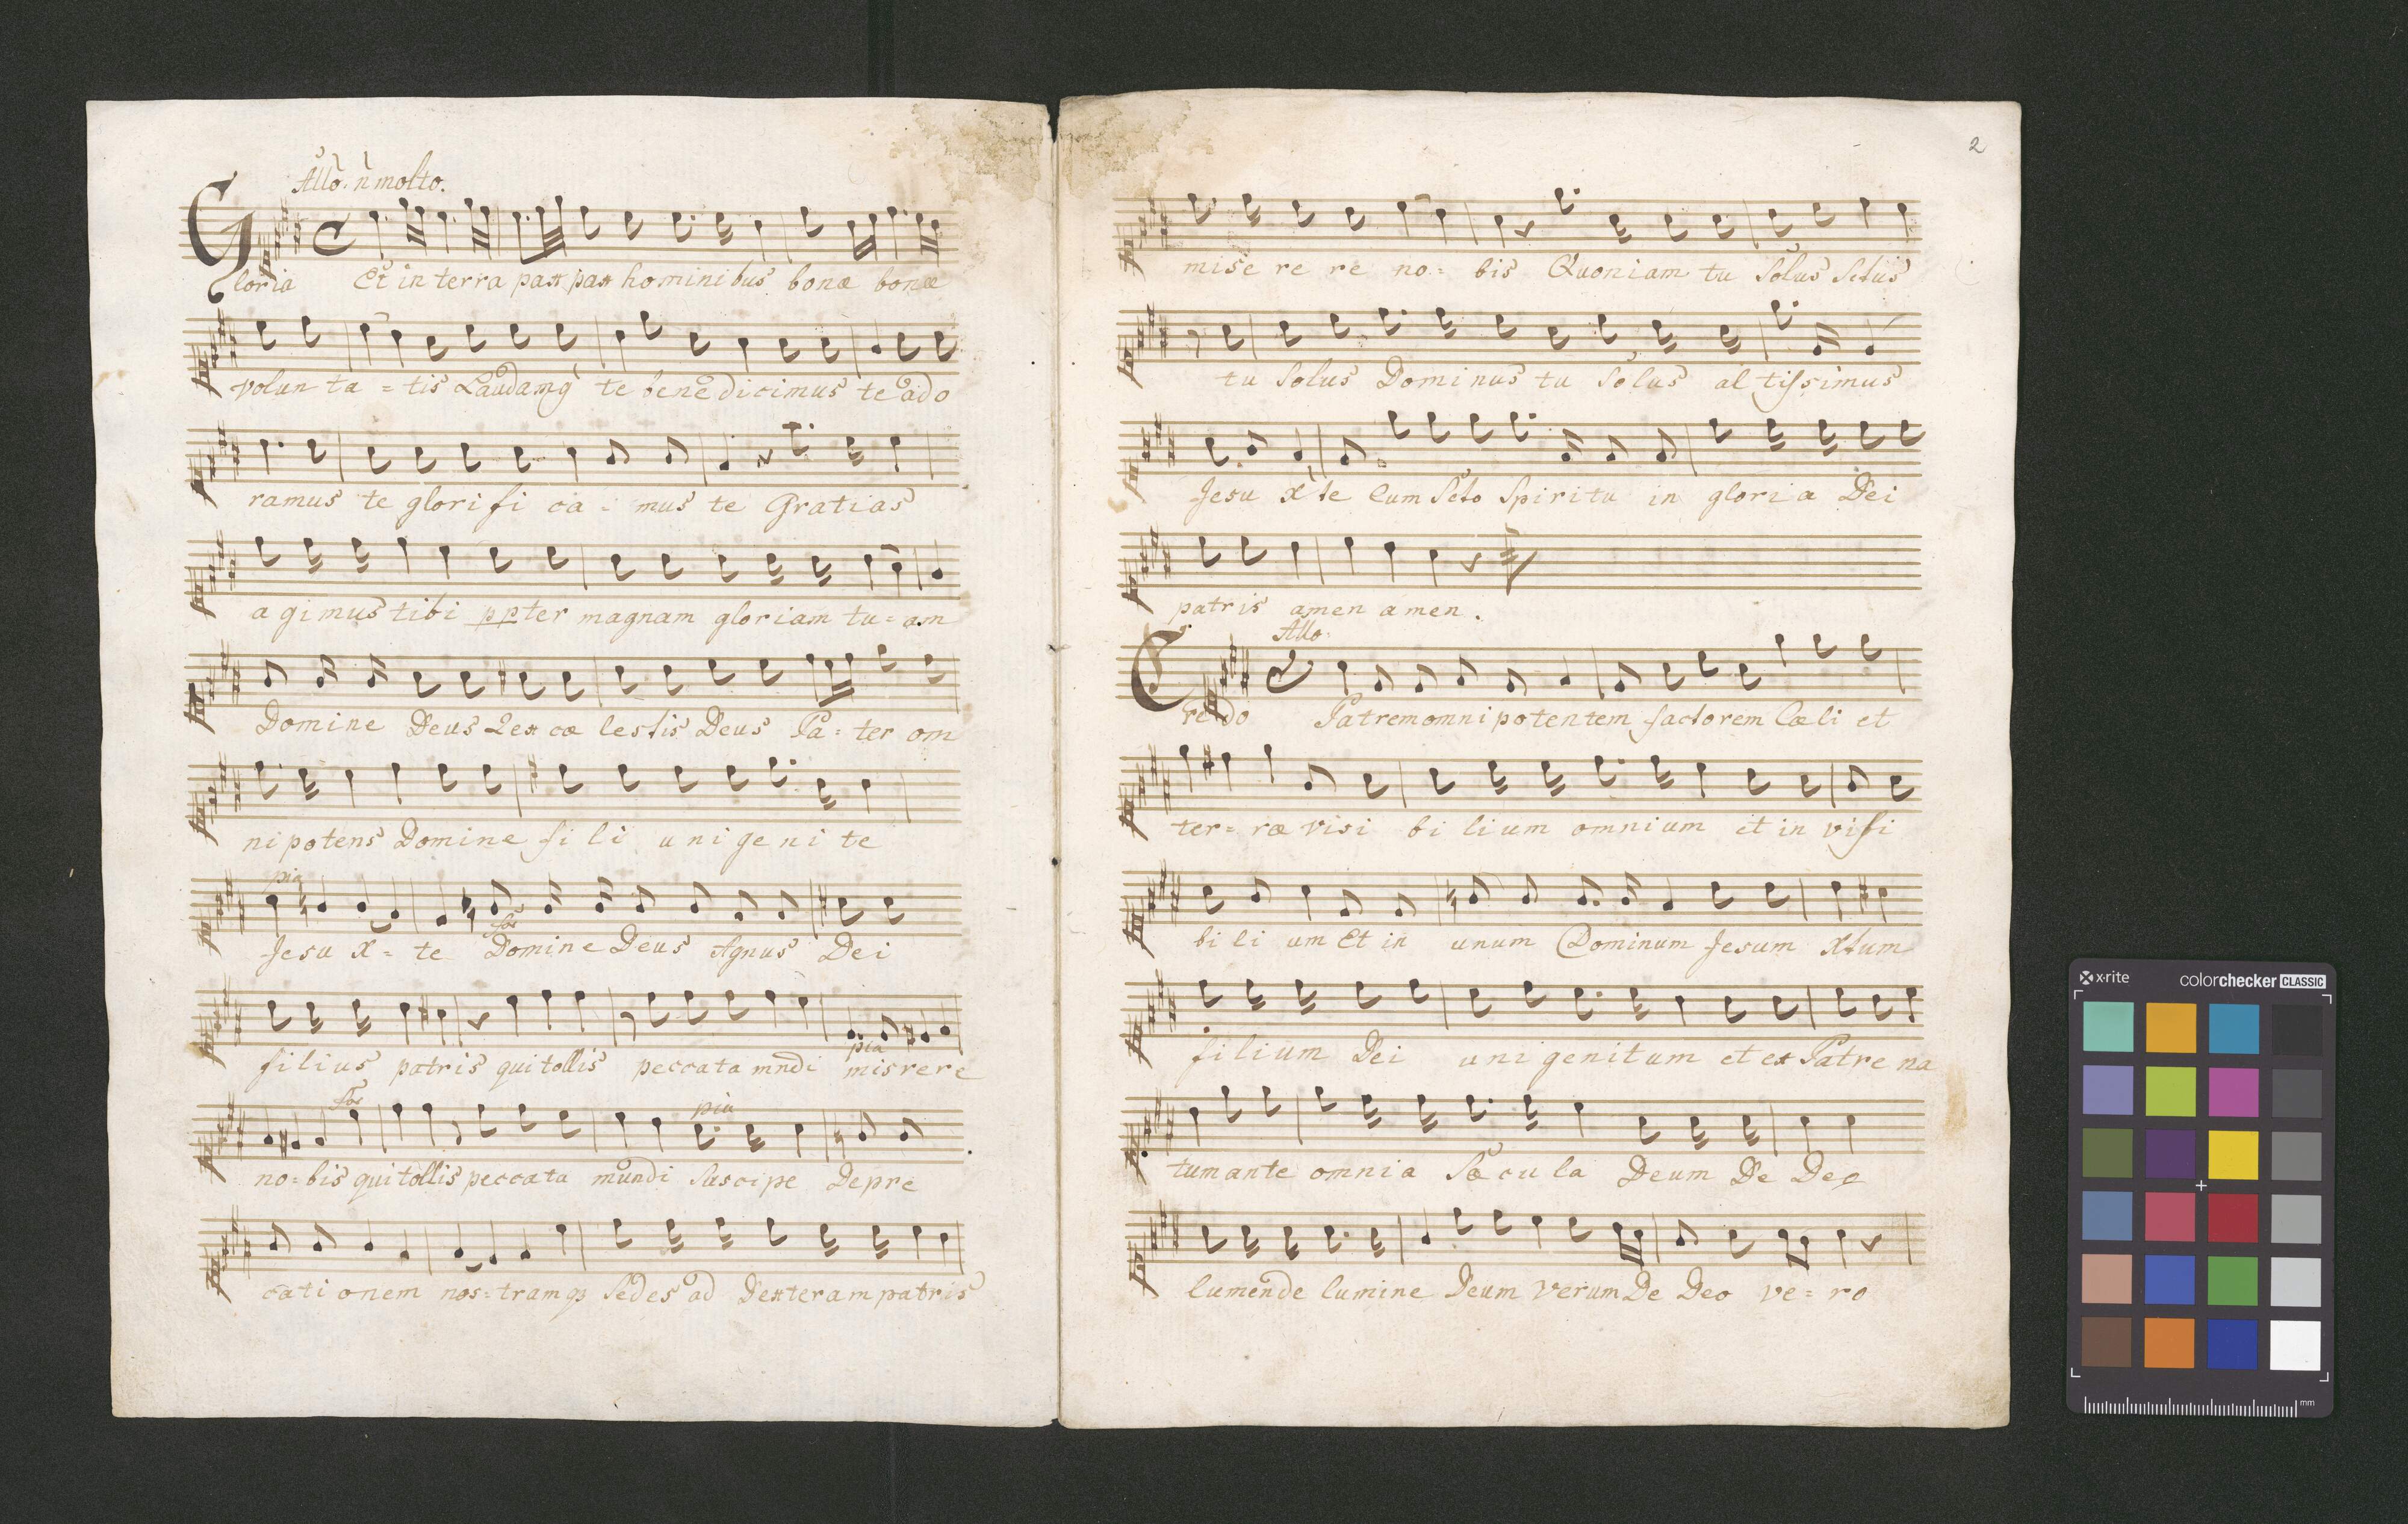 Allo. ñ molto.
Gloria Et in terra pax pax hominibus bonæ bonæ
volun ta = tis Laudamq te benedicimus te ado
ramus te glori fi ca - mus te Gratias
a gimus tibi ppter magnam gloriam tu = am
Domine Deus Rex cæ lestis Deus Pa = ter om
nipotens Domine fi li u ni ge ni te
pia
for
Jesu x = te Domine Deus Agnus Dei
pia
filius patris qui tollis peccata mndi misrere
for pia
no = bis qui tollis peccata mundi suscipe Depre
cati onem nos = tramq Sedes ad Dexteram patris
2
mise re re no = bis Quoniam tu Solus Sctus
tu Solus Dominus tu Solus al tissimus
Jesu xte Cum Scto Spiritu in gloria Dei
patris amen amen.
Allo.
Credo Patrem omni potentem factorem Cæli et
ter = ræ visi bi lium omnium et in visi
bi li um Et in unum Dominum Jesum xtum
filium Dei uni genitum et ex Patre na
tum ante omnia Sæ cu la Deum De Deo
lumen de lumine Deum verum De Deo ve = ro
x-rite colorchecker CLASSIC
mm